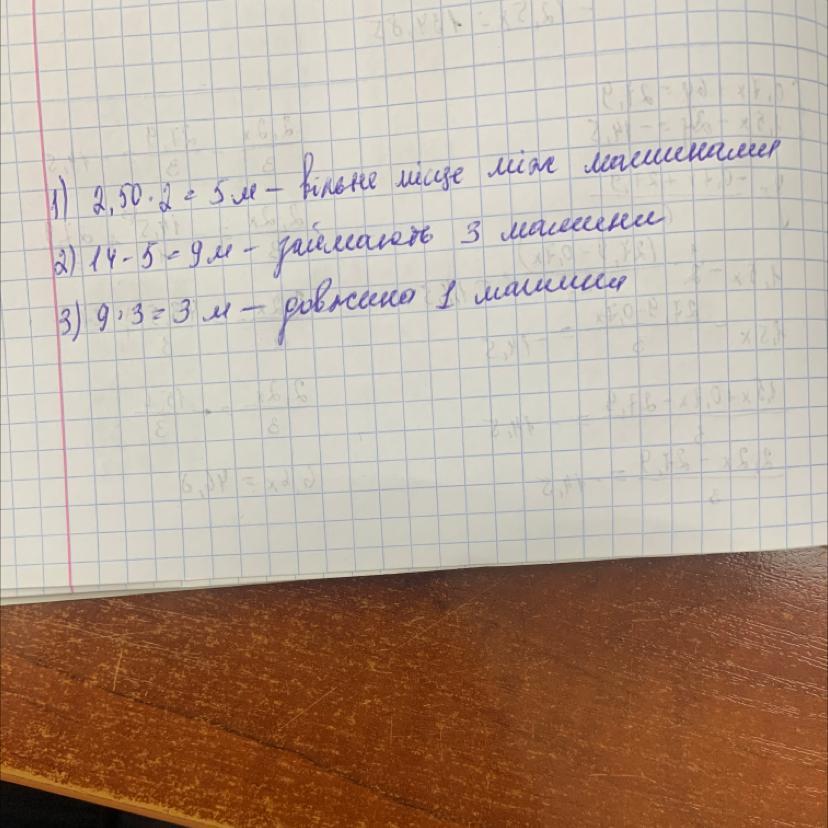 1) 2,50 · 2 = 5 м – вільне місце між машинами
2) 14 - 5 = 9 м – займають 3 машини
3) 9 : 3 = 3 м – довжина 1 машини